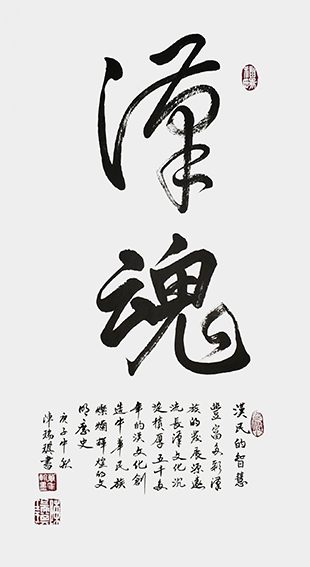 漢魂
漢民的智慧
豐富多彩漢
族的發展源遠
流長漢文化沉
淀積厚五千多
年的漢文化創
造中華民族
燦爛輝煌的文
明歷史
庚子中秋
陳瑞琪書